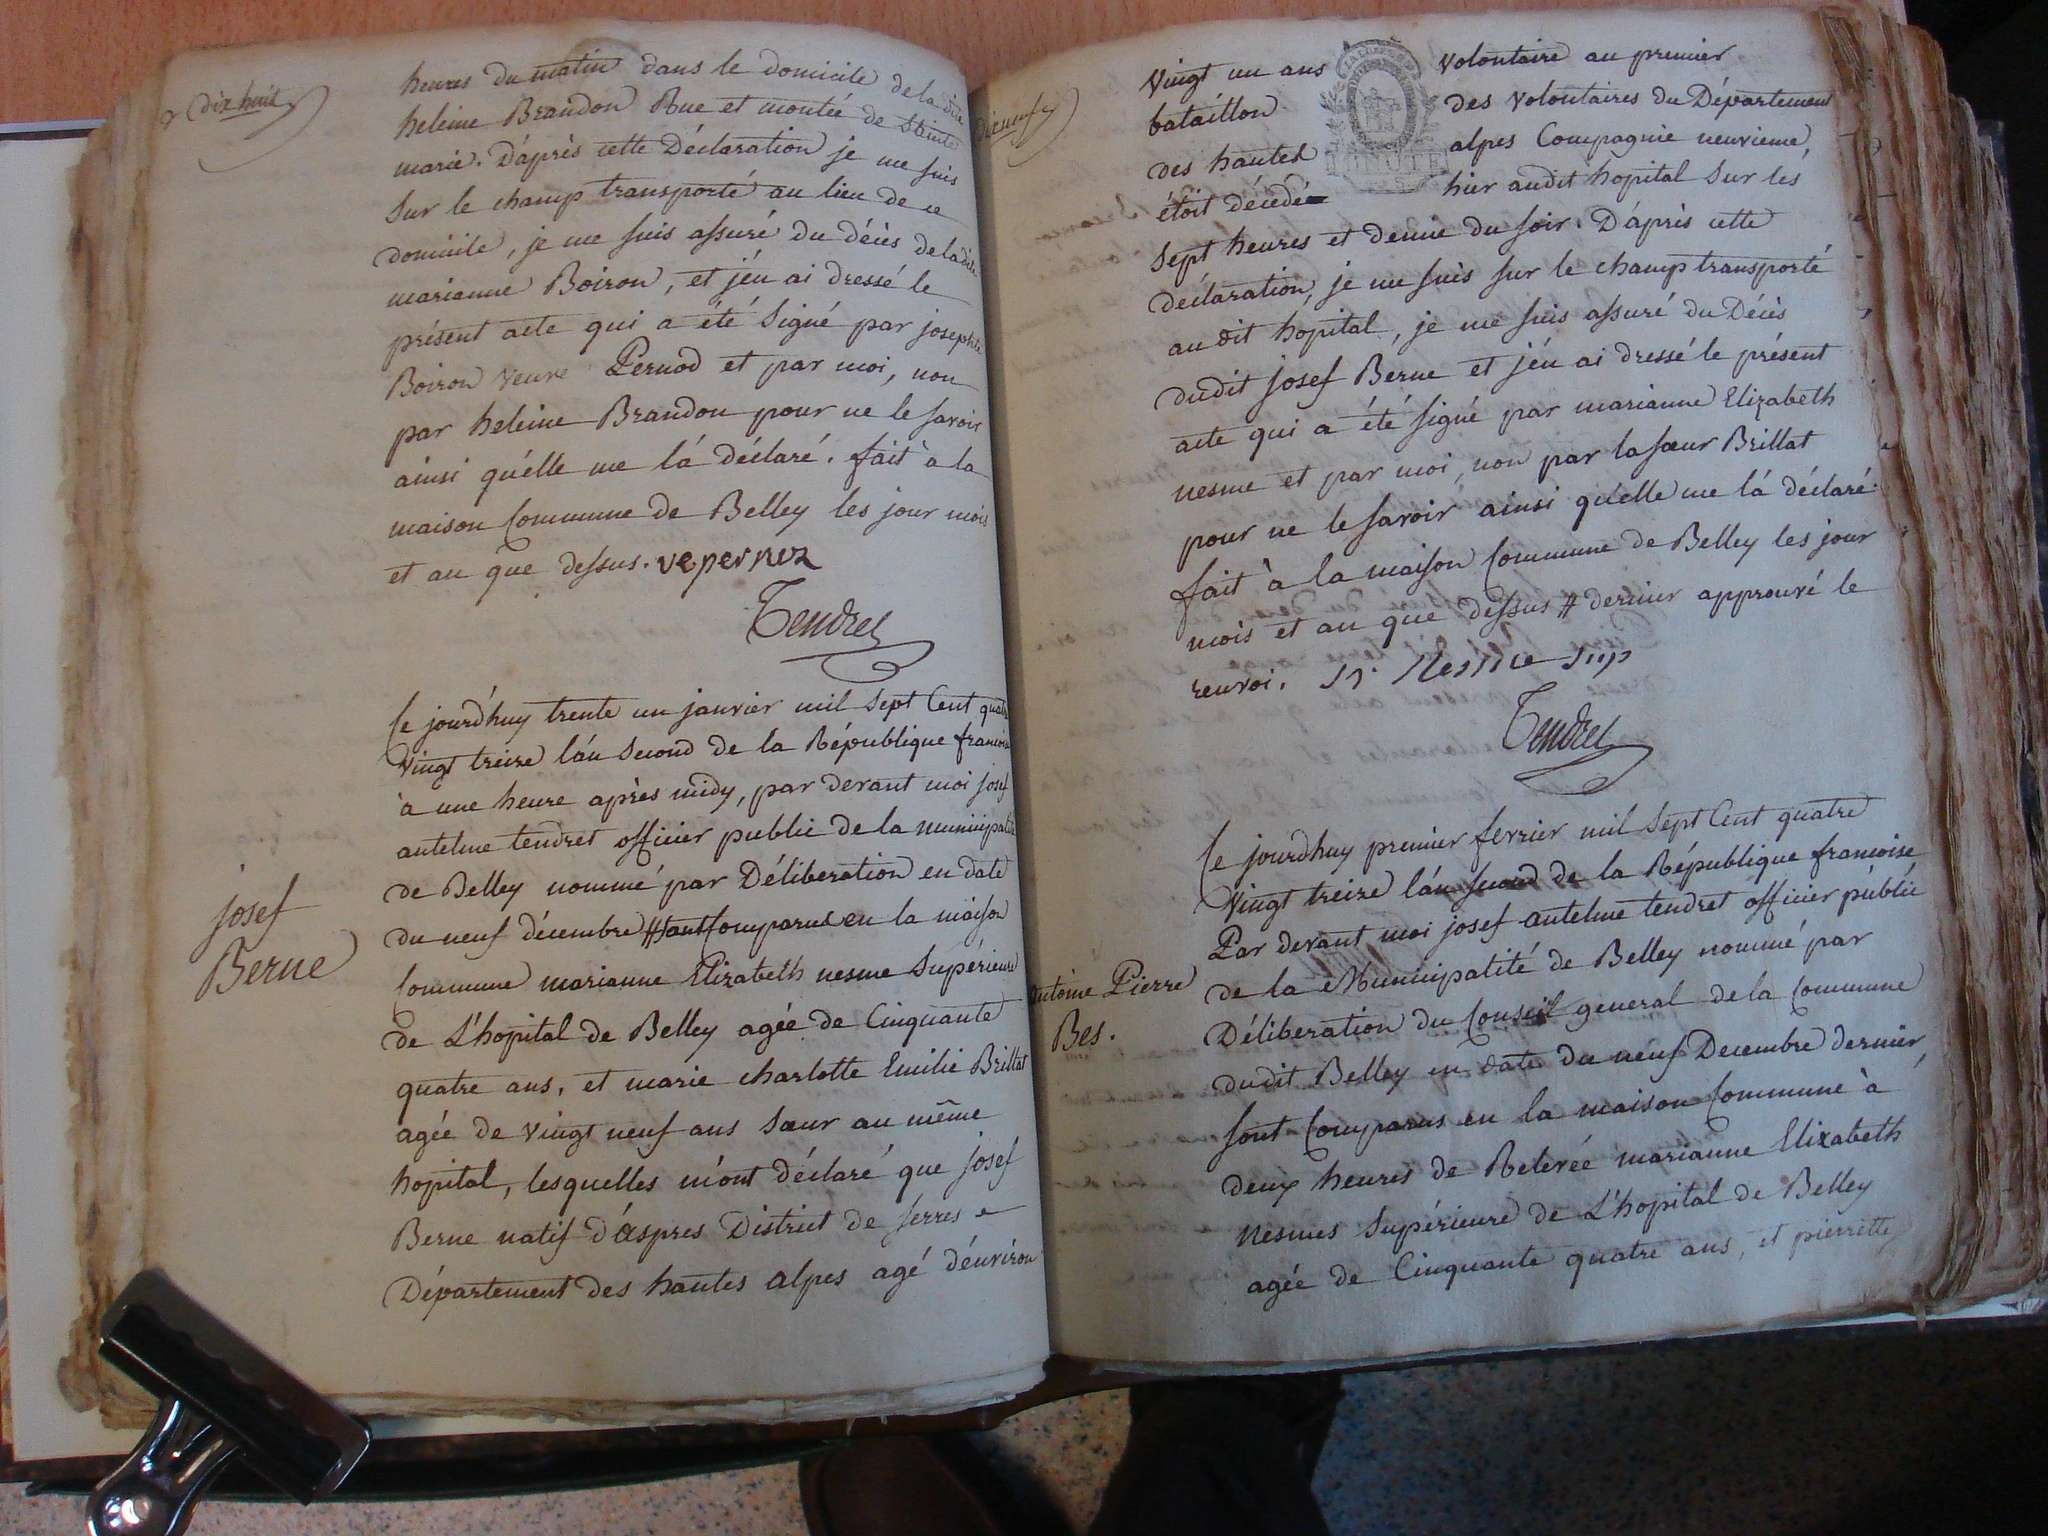 dix huit
heures du matin dans le domicile de la dite
heleine Brandon Rue et montée de Stinte
marie. D'après cette Déclaration je me suis
sur le champ transporté au lieu de ce
domicile, je me suis assuré du décès deladite
marianne Boiron, et j'én ai dressé le
présent acte qui a été signé par josephte
Boiron veuve Pernod et par moi, non
par heleine Brandon pour ne le savoir
ainsi qu'elle me lá déclaré. fait à la
maison Commune de Belley les jour mois
et an que dessus. ve pernez
Tendret
Ce jourd'huy trente un janvier mil sept Cent quatre
Vingt treize l'án second de la République francoise
à une heure après midy, par devant moi josef
antelme tendret officier public de la municipalité
de Belley nommé par Déliberation en date
du neuf décembre # sont Comparus en la maison
josef
Berne
Commune marianne Elizabeth nesme Supérieure
de L'hopital de Belley agée de Cinquante
quatre ans, et marie charlotte Emilie Brillat
agée de vingt neuf ans sœur au même
hopital, lesquelles m'ont déclaré que josef
Berne natif d'áspres District de serres
Département des hautes alpes agé d'énviron
dixneuf
Vingt un ans volontaire au premier
bataillon des volontaires du Département
des hautes alpes Compagnie neuvieme,
étoit décedé hier audit hopital sur les
sept heures et demie du soir. D'après cette
déclaration, je me suis sur le champ transporté
au dit hopital, je me suis assuré du Décès
dudit josef Berne et j'én ai dressé le présent
acte qui a été signé par marianne Elizabeth
nesme et par moi, non par la sœur Brillat
pour ne le savoir ainsi qu'elle me lá déclaré.
fait à la maison Commune de Belley les jour
mois et an que dessus # dernier approuvé le
renvoi. Sr Nesme Sup
Tendret
Ce jourdhuy premier fevrier mil sept Cent quatre
Vingt treize l'án second de la République francoise
Par devant moi josef antelme tendret officier public
de la Municipalité de Belley nommé par
antoine Pierre
Bes.
Déliberation du Conseil general de la Commune
dudit Belley en date du neuf Decembre dernier,
sont Comparus en la maison Commune à
deux heures de Relevée marianne Elizabeth
Nesmes Supérieure de L'hopital de Belley
agée de Cinquante quatre ans, et pierrette